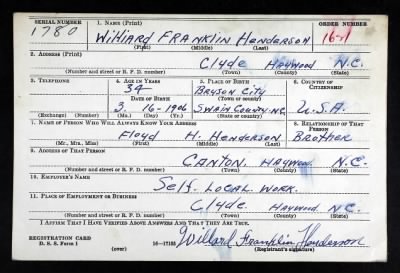 SERIAL NUMBER 1. NAME (Print) ORDER NUMBER
1780 Williard FRANKLIN HENDERSON 16-1
(First) (Middle) (Last)
2. ADDRESS (Print)
Clyde HAYWOOD N.C.
(Number and street or R. F. D. number) (Town) (County) (State)
3. TELEPHONE 4. AGE IN YEARS 5. PLACE OF BIRTH 6. COUNTRY OF CITIZENSHIP
34 BRYSON CITY
DATE OF BIRTH (Town or county)
3 16 - 1906 SWAIN COUNTY-N.C. U.S.A.
(Exchange) (Number) (Mo.) (Day) (Yr.) (State or country)
7. NAME OF PERSON WHO WILL ALWAYS KNOW YOUR ADDRESS 8. RELATIONSHIP OF THAT PERSON
Floyd H. HENDERSON BROTHER
(Mr., Mrs., Miss) (First) (Middle) (Last)
9. ADDRESS OF THAT PERSON
CANTON, HAYWOOD N.C.
(Number and street or R. F. D. number) (Town) (County) (State)
10. EMPLOYER'S NAME
Self. LOCAL WORK.
11. PLACE OF EMPLOYMENT OR BUSINESS
Clyde. HAYWOOD N.C.
(Number and street or R. F. D. number) (Town) (County) (State)
I AFFIRM THAT I HAVE VERIFIED ABOVE ANSWERS AND THAT THEY ARE TRUE.
REGISTRATION CARD
D. S. S. Form 1 16-17105 Willard Franklin Henderson
(over) (Registrant's signature)